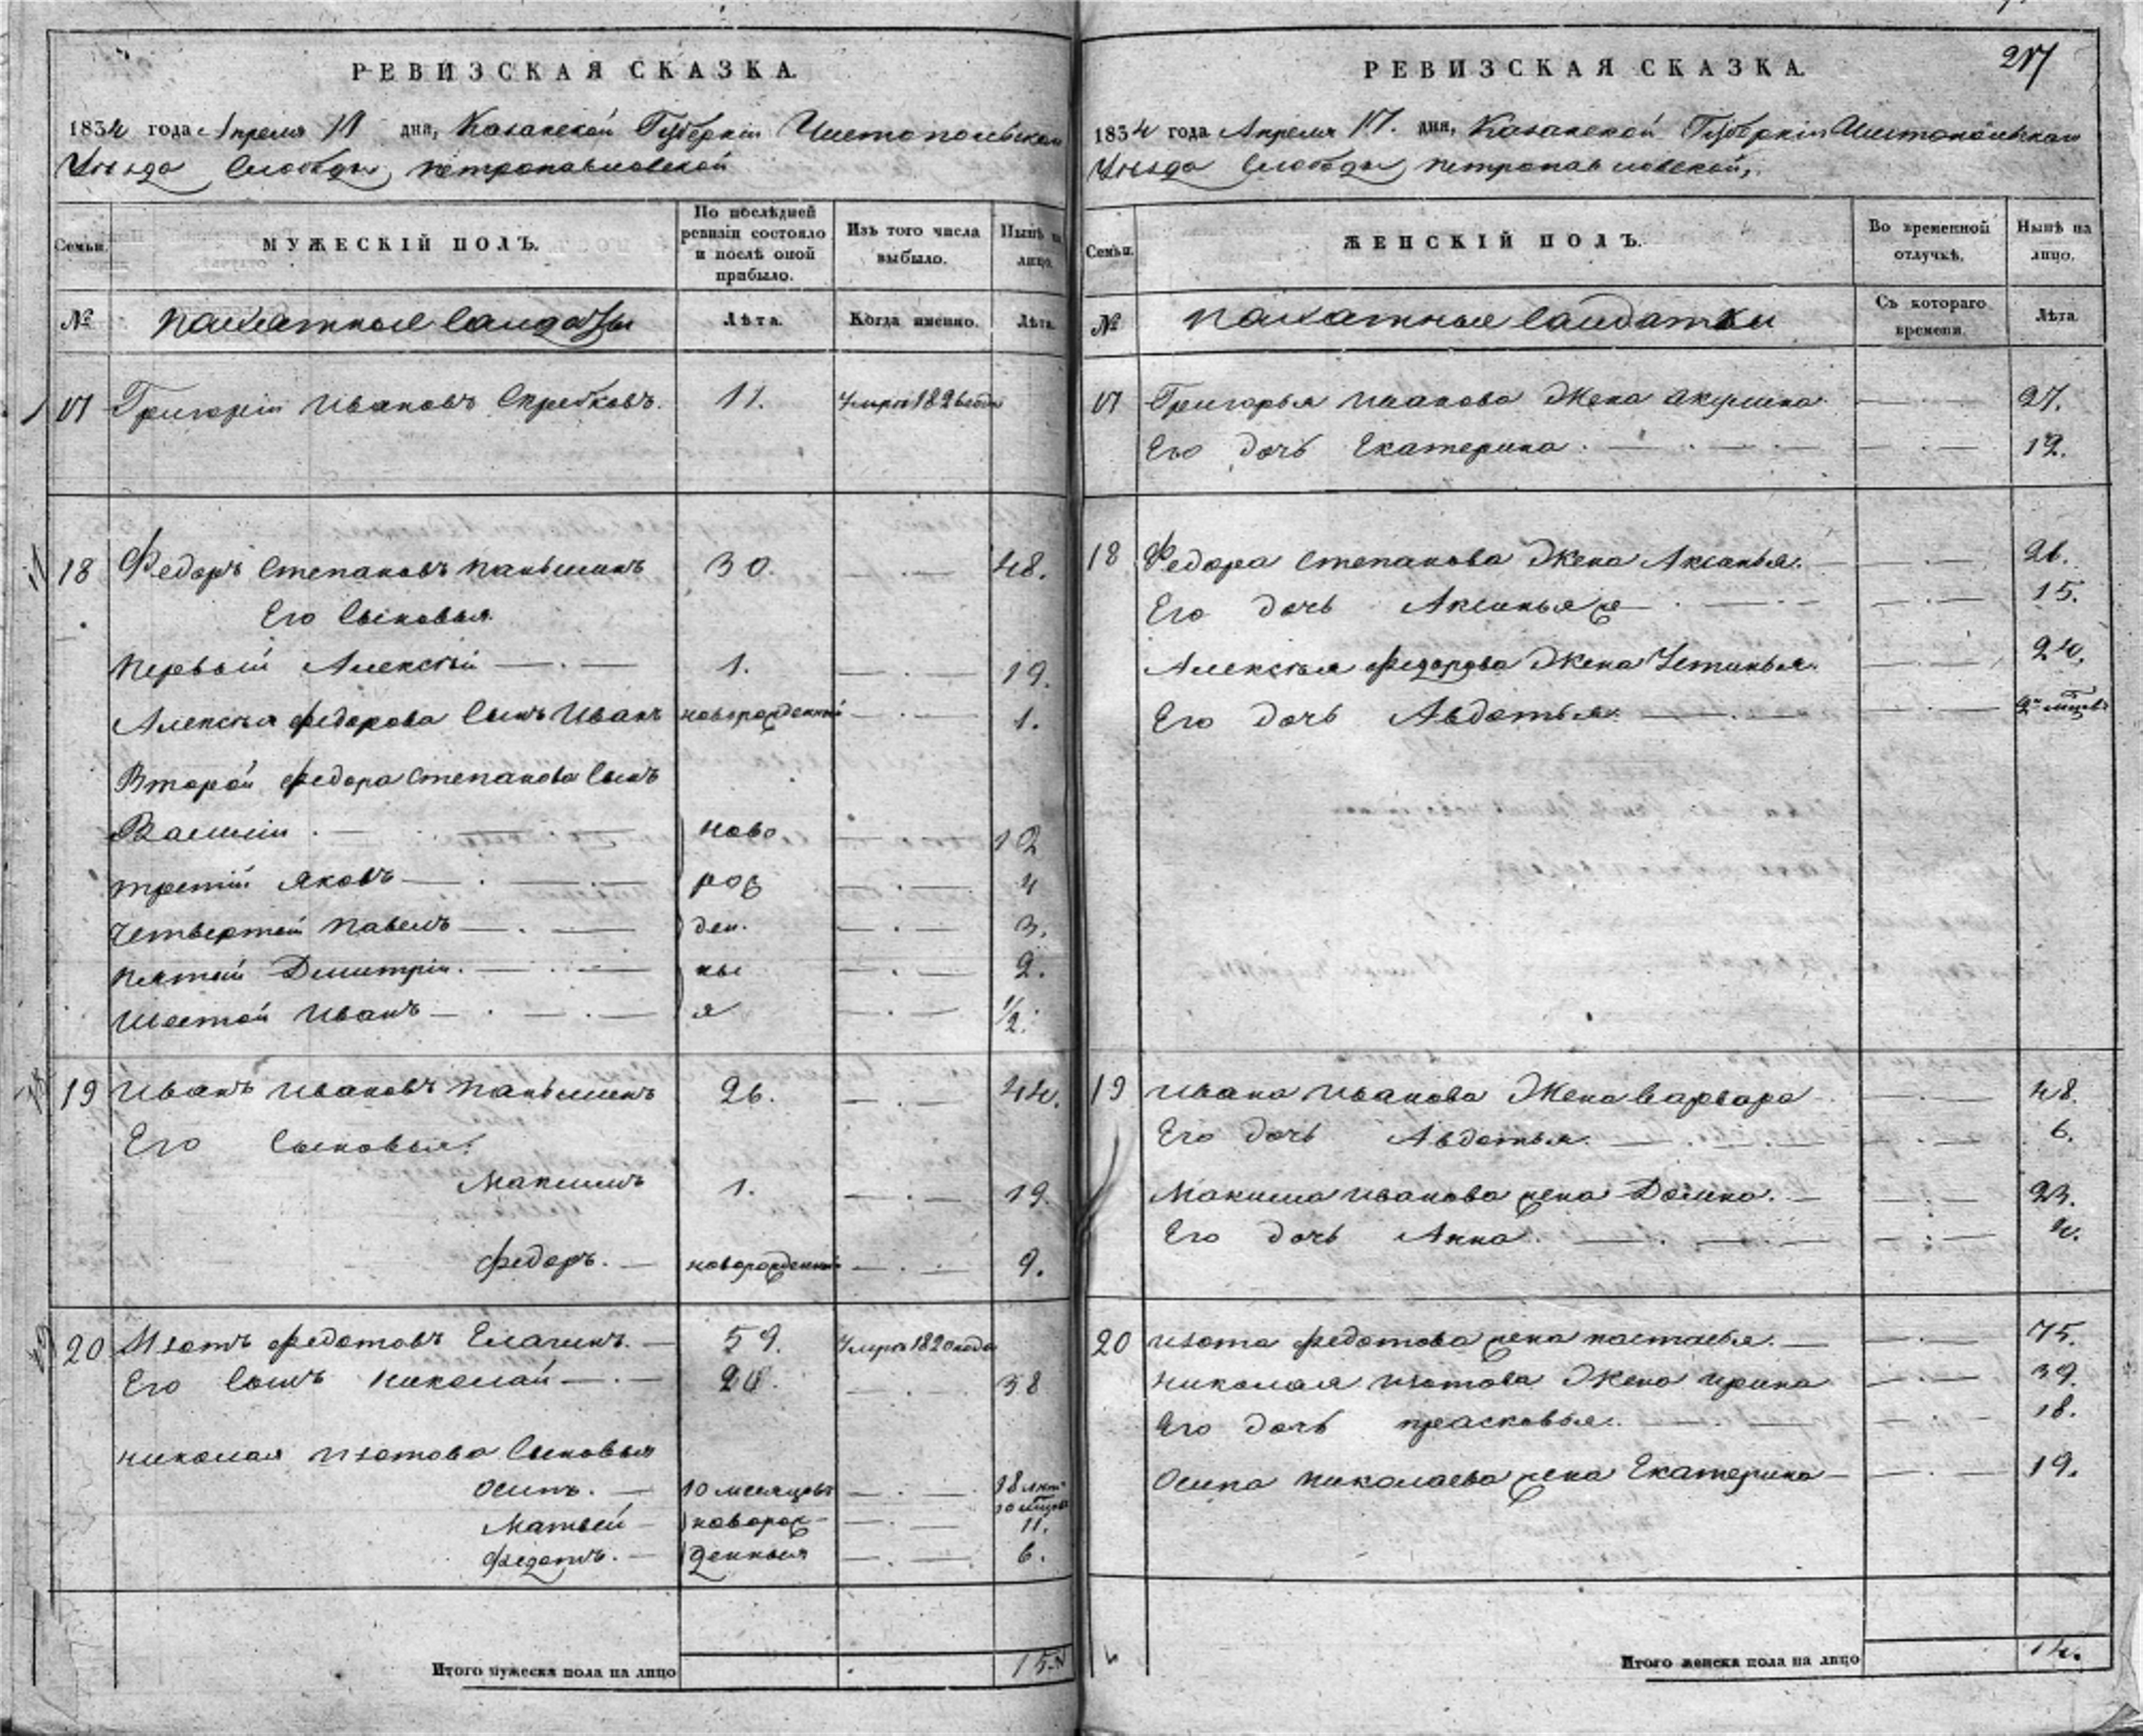 РЕВИЗСКАЯ СКАЗКА.
1834 года Апреля 17 дня, Казанской Губерніи Чистопольскаго
Уѣзда Слободы Петропавловской
Семьи.
МУЖЕСКІЙ ПОЛЪ.
По послѣдней ревизіи состояло и послѣ оной прибыло.
Изъ того числа выбыло.
Нынѣ на лицо.
№
Пахатные Салдаты
Лѣта.
Когда именно.
Лѣта.
17 Григорій Ивановъ Скребковъ. 11. Умре 1826 года
18 Федоръ Степановъ Паньшинъ 30. 48.
Его Сыновья
Первый Алексѣй 1. 19.
Алексѣя Федорова Сынъ Иванъ новорожденный 1.
Второй Федора Степанова Сынъ
Василій ново 12
Третій Яковъ рож 4
Четвертой Павелъ ден. 3.
Пятой Дмитрій ны 2.
Шестой Иванъ я 1/2.
19 Иванъ Ивановъ Паньшинъ 26. 44.
Его Сыновья:
Максимъ 1. 19.
Федоръ. новорожденный 9.
20 Изотъ Федотовъ Елагинъ. 59. Умре 1820 года
Его Сынъ Николай 20. 38
Николая Изотова Сыновья
Осипъ. 10 месяцовъ 18 лѣтъ 10 мцовъ
Матвей новорож 11.
Федотъ. денныя 6.
Итого мужеска пола на лицо 15.
217
РЕВИЗСКАЯ СКАЗКА.
1834 года Апреля 17. дня, Казанской Губерніи Чистопольскаго
Уѣзда Слободы Петропавловской,
Семьи.
ЖЕНСКІЙ ПОЛЪ.
Во временной отлучкѣ.
Нынѣ на лицо.
№
Пахатные Салдатки
Съ котораго времени.
Лѣта.
17 Григорья Иванова Жена Акулина 27.
Его дочь Екатерина 12.
18 Федора Степанова Жена Аксинья. 26.
Его дочь Аксинья 15.
Алексѣя Федорова Жена Устинья. 24.
Его дочь Авдотья 2 мцовъ
19 Ивана Иванова Жена Варвара 48.
Его дочь Авдотья 6.
Максима Иванова жена Домна. 23.
Его дочь Анна. 4.
20 Изота Федотова жена Настасья. 75.
Николая Изотова Жена Ирина 39.
Его дочь Прасковья. 18.
Осипа Николаева жена Екатерина 19.
Итого женска пола на лицо 14.